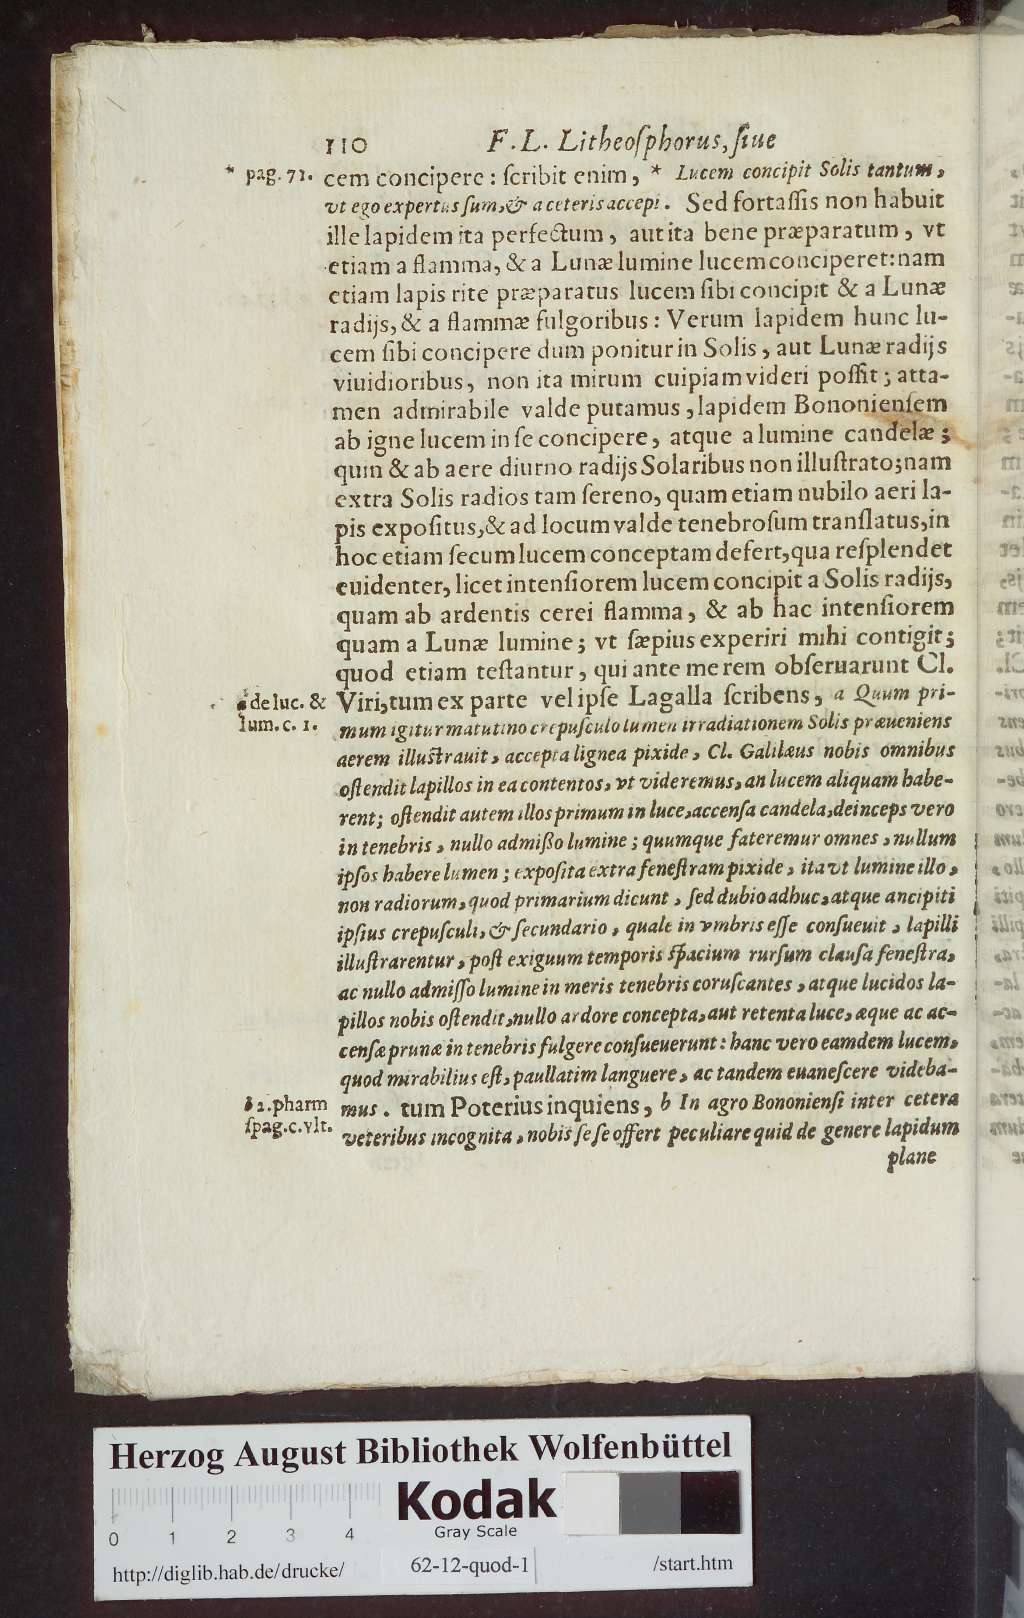 110 F. L. Litheoſphorus, ſiue
* pag. 71. cem concipere : ſcribit enim, * Lucem concipit Solis tantum,
vt ego expertus ſum, & a ceteris accepi. Sed fortaſſis non habuit
ille lapidem ita perfectum, aut ita bene præparatum, vt
etiam a flamma, & a Lunæ lumine lucem conciperet: nam
etiam lapis rite præparatus lucem ſibi concipit & a Lunæ
radijs, & a flammæ fulgoribus: Verum lapidem hunc lu-
cem ſibi concipere dum ponitur in Solis, aut Lunæ radijs
viuidioribus, non ita mirum cuipiam videri poſſit; atta-
men admirabile valde putamus, lapidem Bononienſem
ab igne lucem in ſe concipere, atque a lumine candelæ;
quin & ab aere diurno radijs Solaribus non illuſtrato; nam
extra Solis radios tam ſereno, quam etiam nubilo aeri la-
pis expoſitus, & ad locum valde tenebroſum tranſlatus, in
hoc etiam ſecum lucem conceptam defert, qua reſplendet
euidenter, licet intenſiorem lucem concipit a Solis radijs,
quam ab ardentis cerei flamma, & ab hac intenſiorem
quam a Lunæ lumine; vt ſæpius experiri mihi contigit;
quod etiam teſtantur, qui ante me rem obſeruarunt Cl.
a de luc. & Viri, tum ex parte vel ipſe Lagalla ſcribens, a Quum pri-
lum. c. 1. mum igitur matutino crepuſculo lumen irradiationem Solis præueniens
aerem illuſtrauit, accepta lignea pixide, Cl. Galilæus nobis omnibus
oſtendit lapillos in ea contentos, vt videremus, an lucem aliquam habe-
rent; oſtendit autem illos primum in luce, accenſa candela, deinceps vero
in tenebris, nullo admißo lumine; quumque fateremur omnes, nullum
ipſos habere lumen; expoſita extra feneſtram pixide, ita vt lumine illo,
non radiorum, quod primarium dicunt, ſed dubio adhuc, atque ancipiti
ipſius crepuſculi, & ſecundario, quale in vmbris eſſe conſueuit, lapilli
illuſtrarentur, poſt exiguum temporis ſpacium rurſum clauſa feneſtra,
ac nullo admiſſo lumine in meris tenebris coruſcantes, atque lucidos la-
pillos nobis oſtendit, nullo ardore concepta, aut retenta luce, æque ac ac-
cenſæ prunæ in tenebris fulgere conſueuerunt: hanc vero eamdem lucem,
quod mirabilius eſt, paullatim languere, ac tandem euaneſcere videba-
b 2. pharm mus. tum Poterius inquiens, b In agro Bononienſi inter cetera
ſpag. c. vlt. veteribus incognita, nobis ſeſe offert peculiare quid de genere lapidum
plane
Herzog August Bibliothek Wolfenbüttel
Kodak
Gray Scale
0 1 2 3 4
http://diglib.hab.de/drucke/ 62-12-quod-1 /start.htm